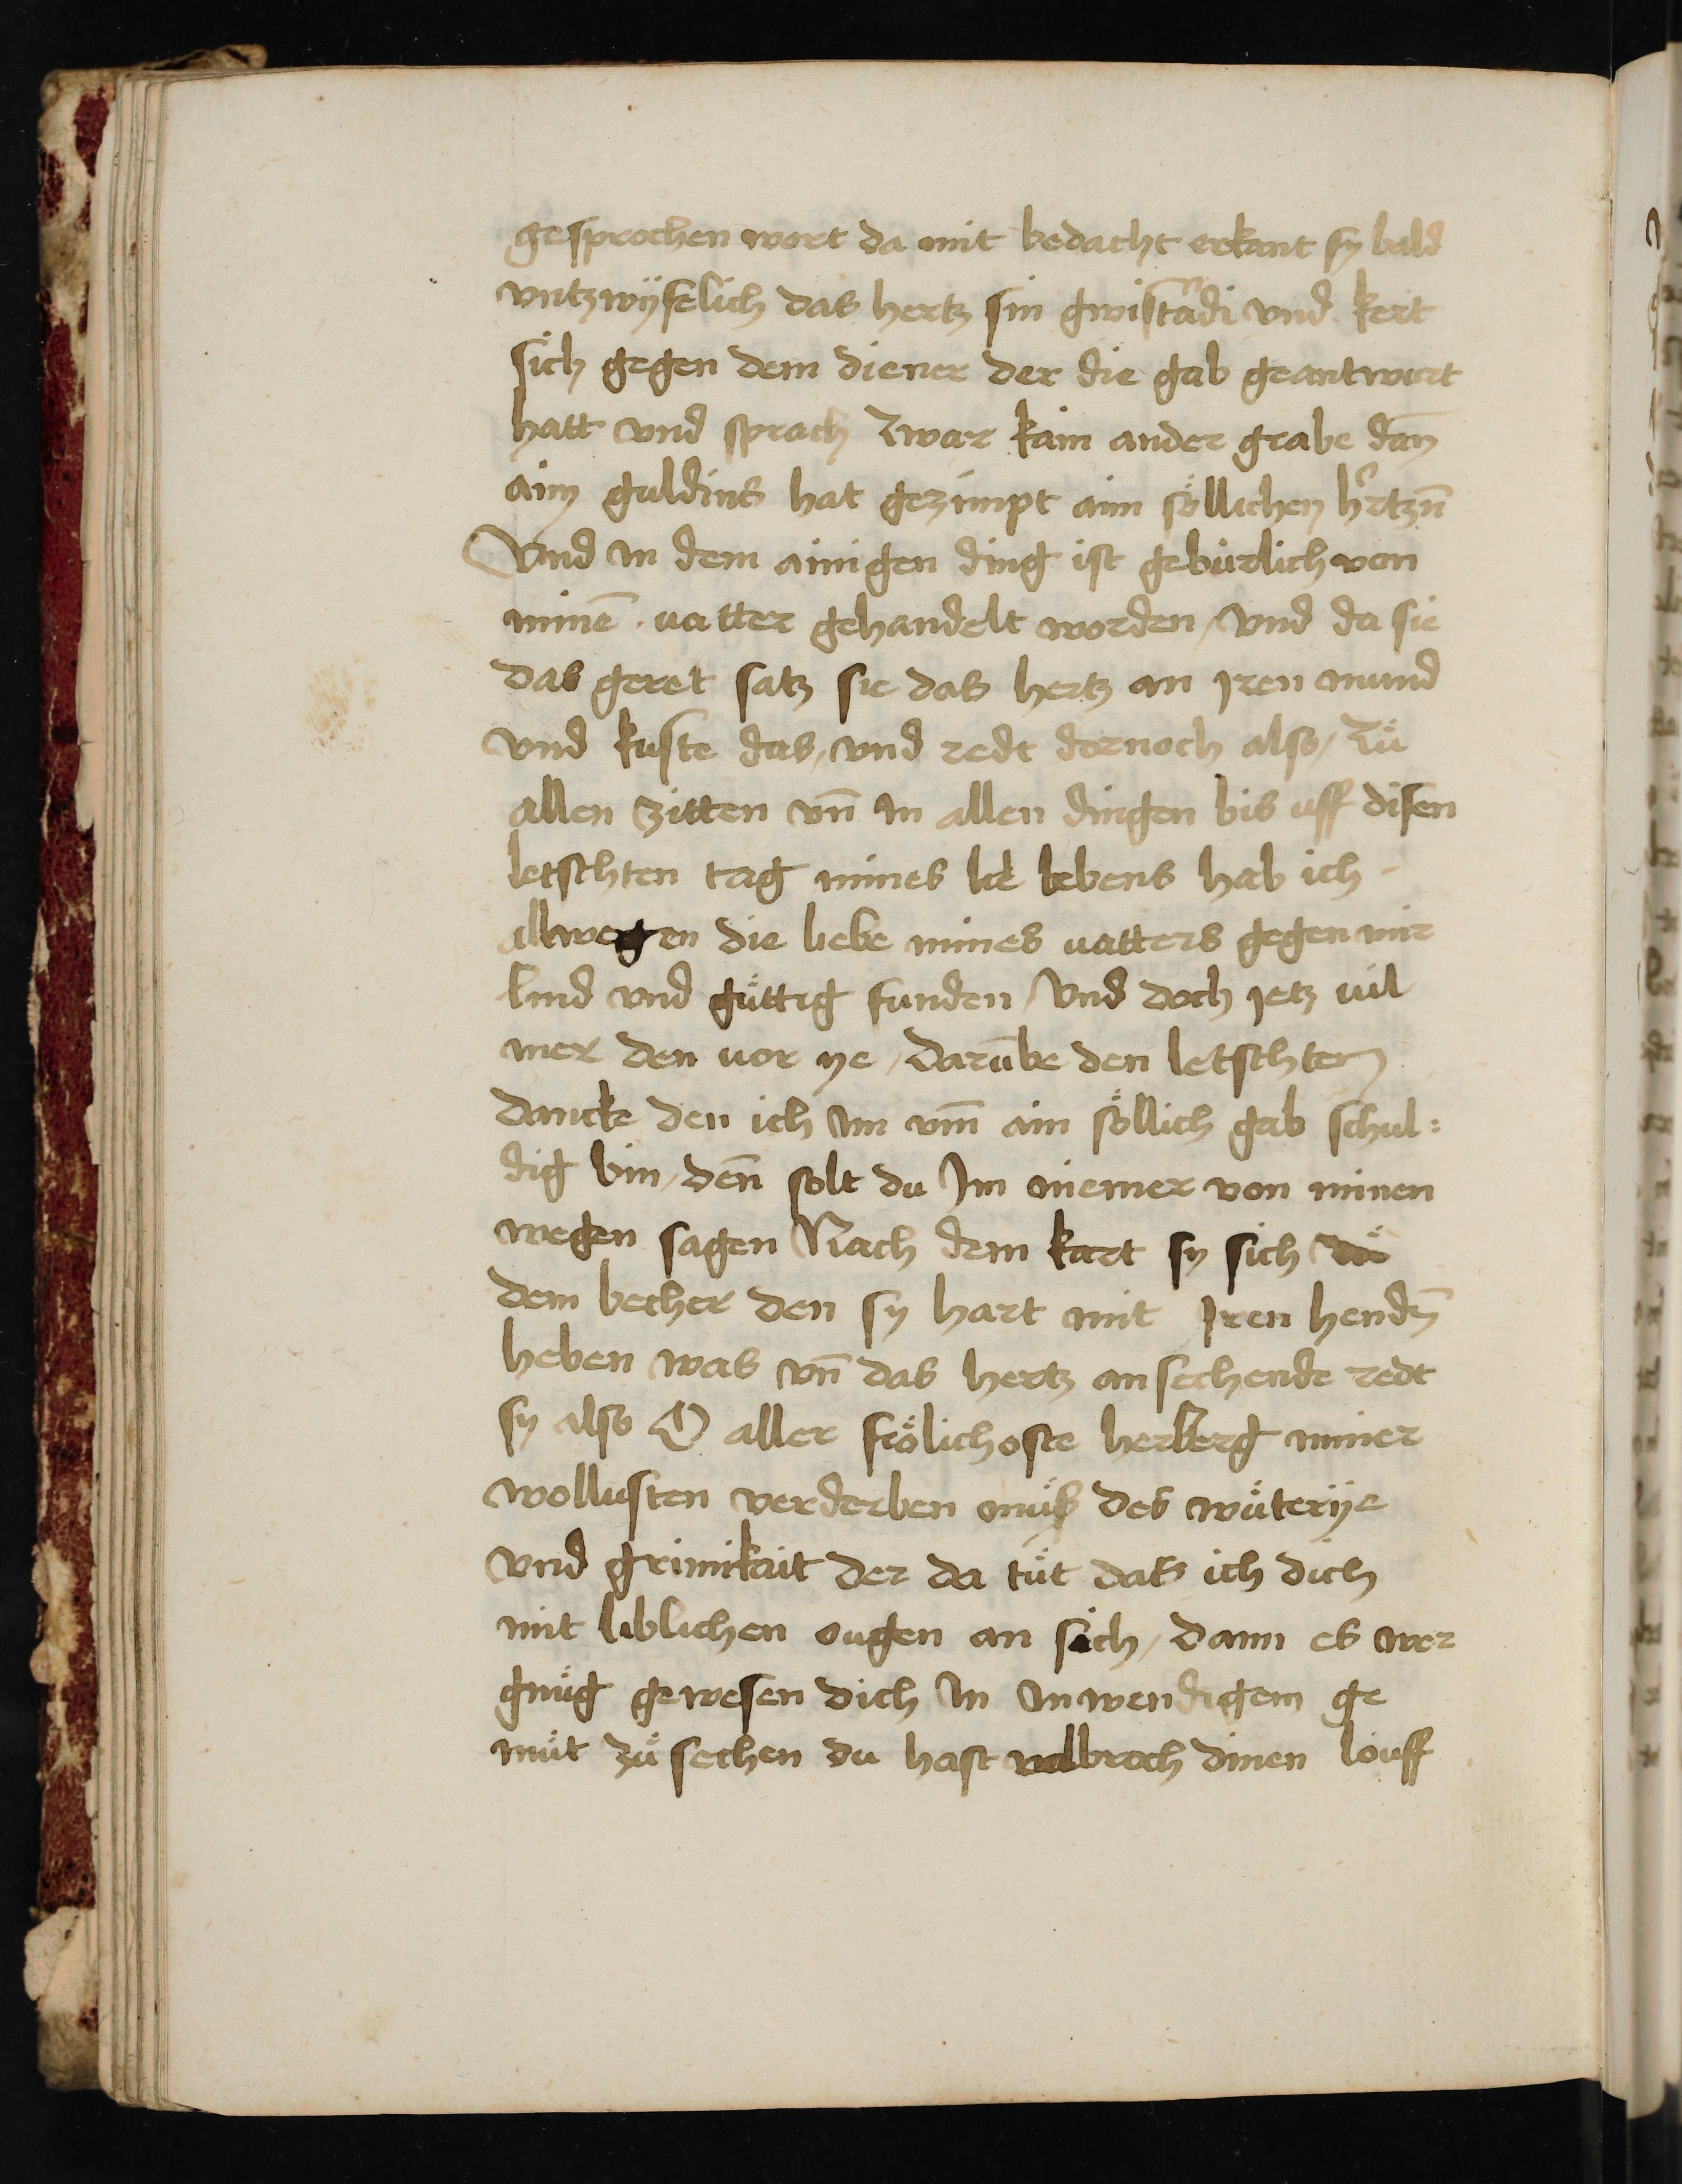 gesprochen wort da mit bedacht erkant sy bald
vntzwyfelich das hertz sin gwistādi vnd kert
sich gegen dem diener der die gab geantwurt
hatt vnd sprach Zwar kain ander grabe dan̄
ain guldins hat gezimpt aim söllichen hr̄tzn̄
Vnd in dem ainigen ding ist gebürlich von
minē vatter gehandelt worden / vnd da sie
das geret satz sie das hertz an Jren mund
vnd kuste das / vnd redt dornoch also / Zů
allen zitten vn̄ in allen dingen bis uff disen
letschten tag mines le lebens hab ich
allwegen die liebe mines vatters gegen mir
lind vnd gůttig funden / Vnd doch jetz vil
mer den vor ye / Darūbe den letschten
dancke den ich im vm̄ ain söllich gab schul=
dig bin / den̄ solt du Jm niemer von minen
wegen sagen Nach dem kart sy sich zů
dem becher den sy hart mit Jren hendn̄
heben was vn̄ das hertz ansechende redt
sy also O aller frölichoste herberg miner
wollusten verderben můß des wůterye
vnd grimikait der da tůt das ich dich
mit liblichen ougen an sich / dann es wer
gnůg gewesen dich in inwendigem ge
můt zů sechen du hast volbroch dinen louff